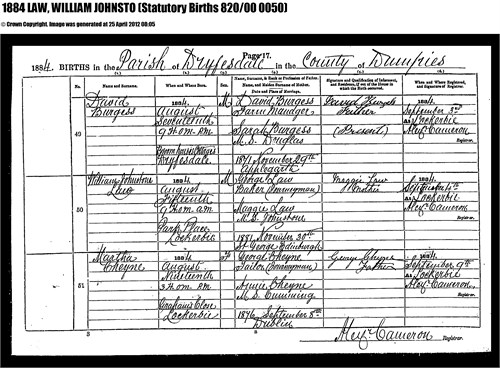 1884 LAW, WILLIAM JOHNSTO (Statutory Births 820/00 0050)
© Crown Copyright. Image was generated at 25 April 2012 08:05
Page 17.
1884. BIRTHS in the Parish of Dryfesdale in the County of Dumfries
No.
Name and Surname.
When and Where Born.
Sex.
Name, Surname, & Rank or Profession of Father.
Name, and Maiden Surname of Mother.
Date and Place of Marriage.
Signature and Qualification of Informant, and Residence, if out of the House in which the Birth occurred.
When and Where Registered, and Signature of Registrar.
49
David
Burgess
1884.
August
Seventeenth
9 H. P.M.
Dryfesdale
M
David Burgess
Farm Manager
Sarah Burgess
M.S. Douglas
1871 November 29th
Applegarth
David Burgess
Father
(Present)
1884.
September 3rd
At Lockerbie
Alexr Cameron
Registrar.
50
William Johnstone
Law
1884.
August
Sixteenth
9 H. A.M.
Park Place
Lockerbie
M
George Law
Baker (Journeyman)
Maggie Law
M.S. Johnstone
1881, November 30th
St George Edinburgh
Maggie Law
Mother
1884.
September 4th
At Lockerbie
Alexr Cameron
Registrar.
51
Martha
Cheyne
1884.
August
Nineteenth
3 H. A.M.
Lockerbie
F
George Cheyne
Tailor (Journeyman)
Annie Cheyne
M.S. Cumming
1876 September 8th
Dublin
George Cheyne
Father
1884.
September 9th
At Lockerbie
Alexr Cameron
Registrar.
Alexr Cameron Registrar.